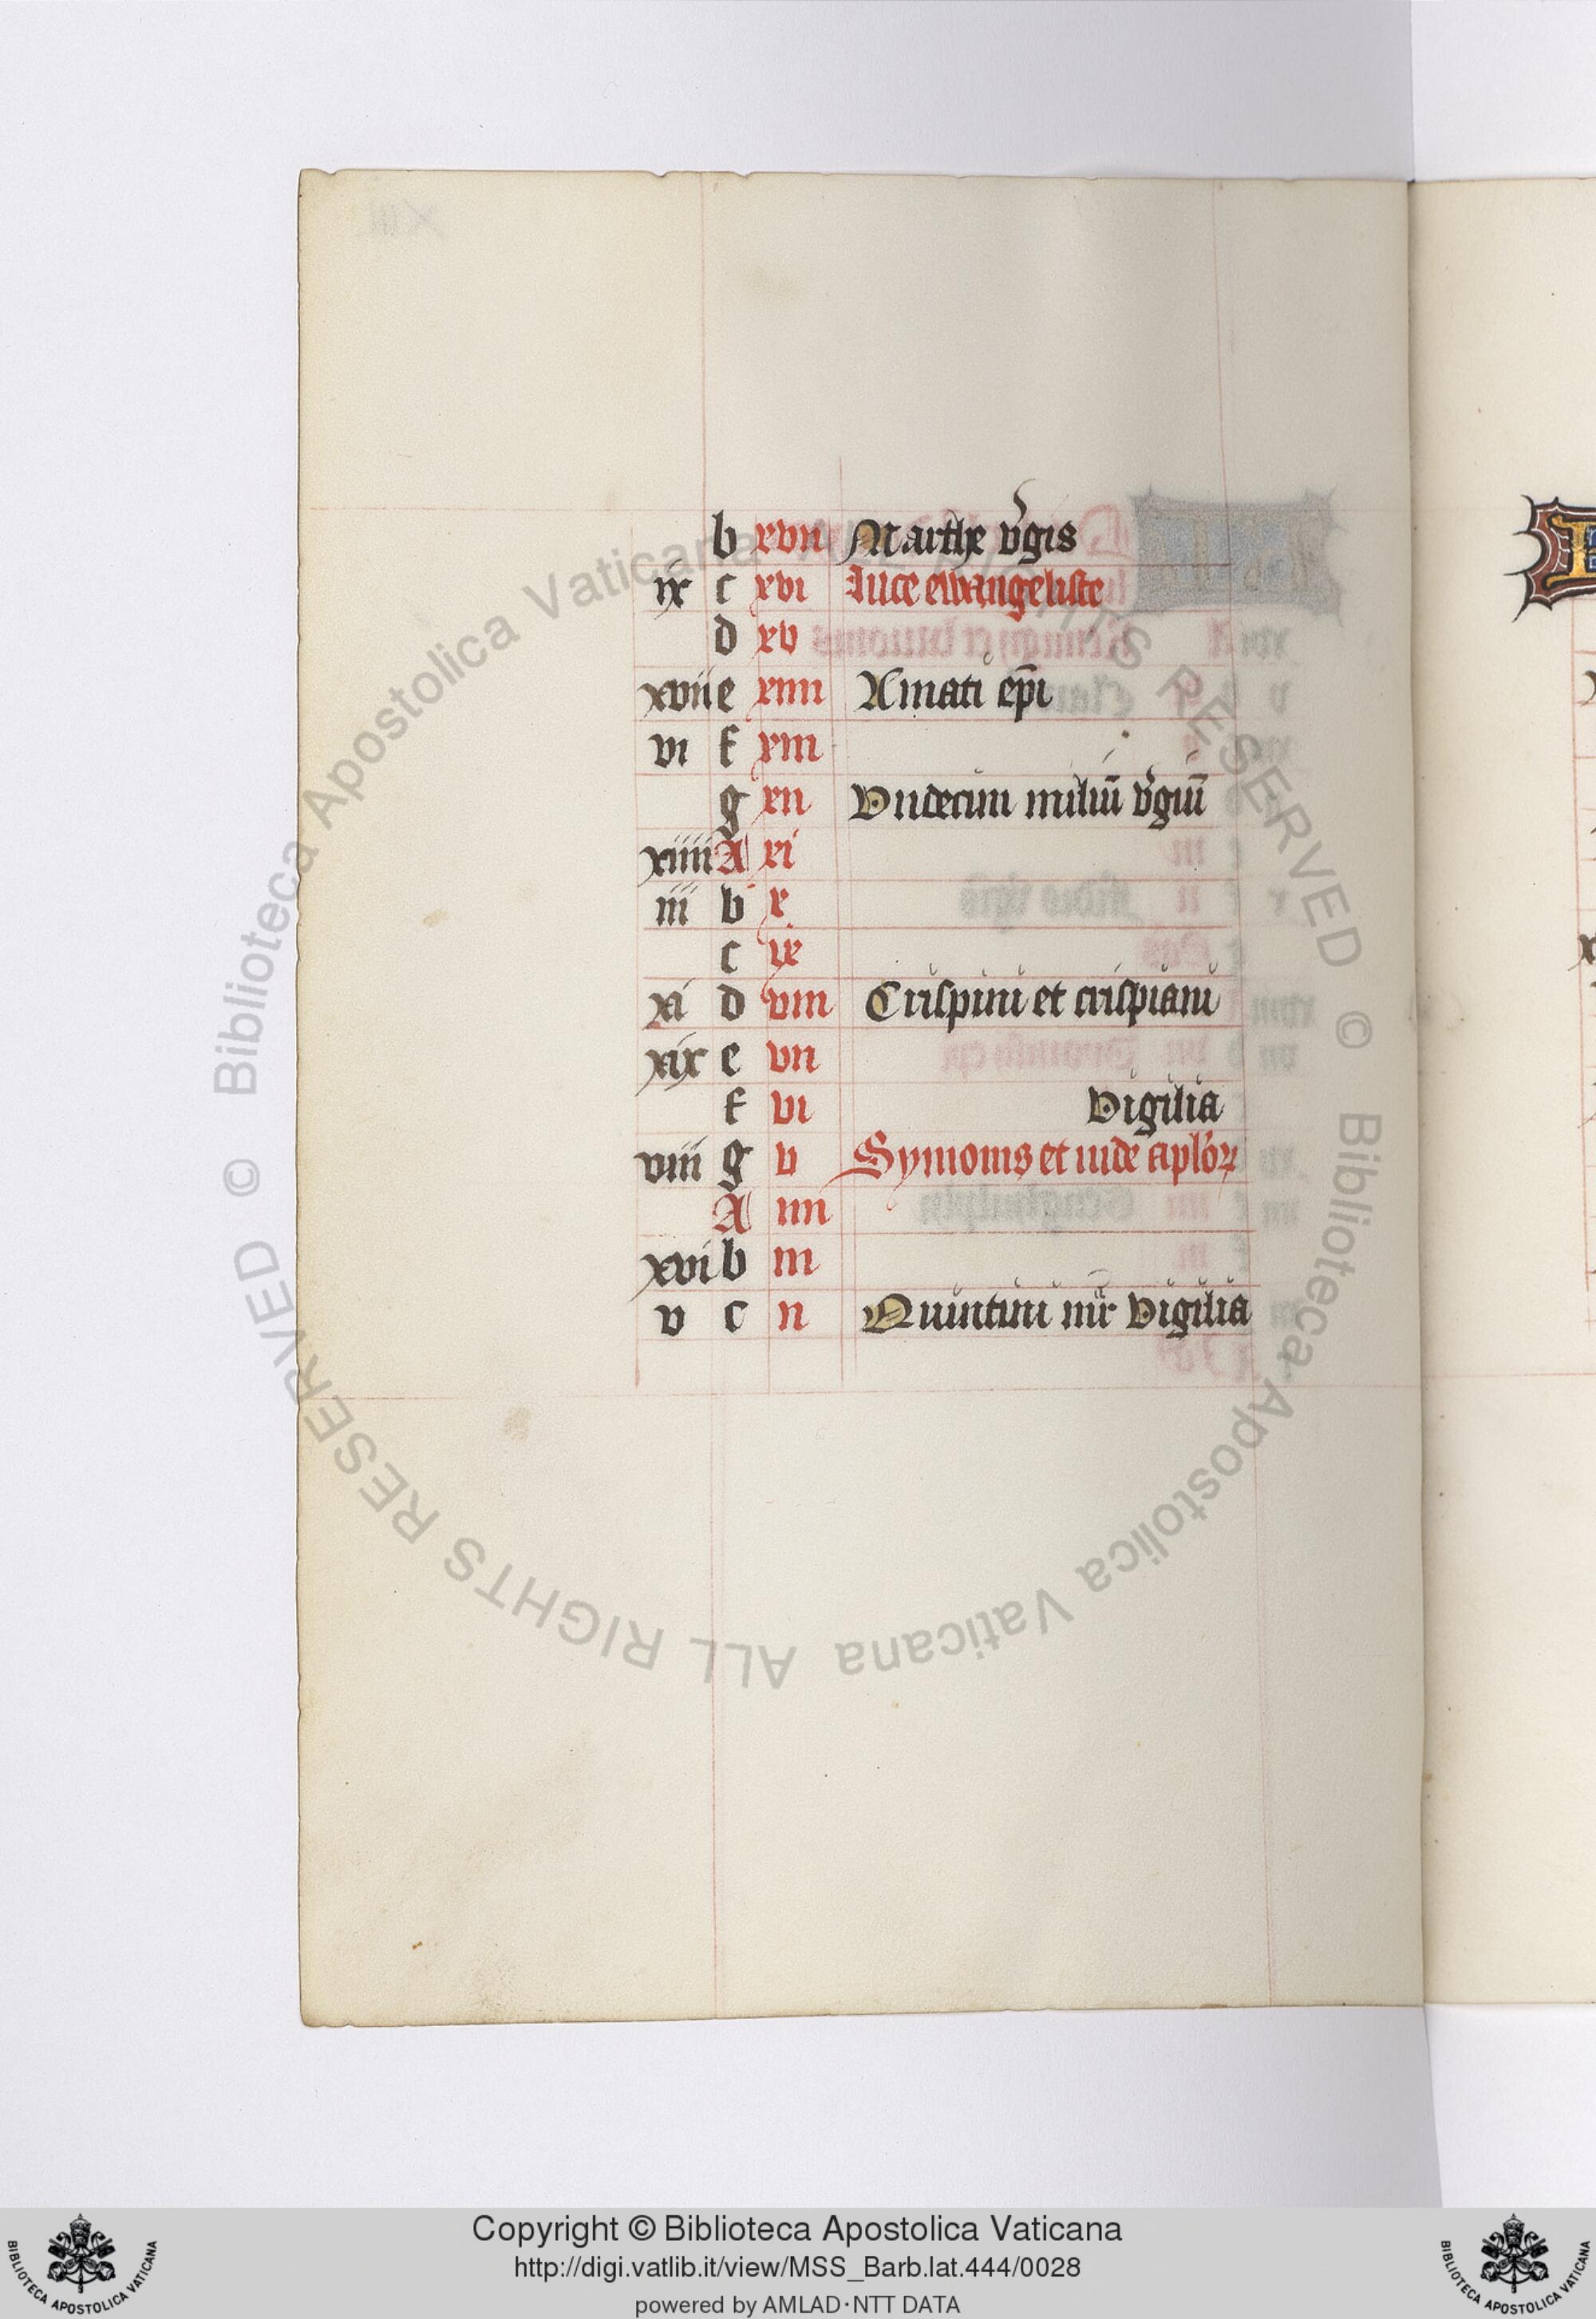 b xvii Marthe v̾gis
ix c xvi luce ewangeliste
d xv
xvii e xiiii Amati ep̄i
vi f xiii
g xii Undecim miliū v̾giū
xiiii A xi
iii b x
c ix
xi d viii Crispini et crispiani
xix e vii
f vi vigilia
viii g v Symonis et iude aplo̾ꝝ
A iiii
xvi b iii
v c ii Quintini mr̄ vigilia
© Biblioteca Apostolica Vaticana ALL RIGHTS RESERVED © Biblioteca Apostolica Vaticana ALL RIGHTS RESERVED
Copyright © Biblioteca Apostolica Vaticana
http://digi.vatlib.it/view/MSS_Barb.lat.444/0028
powered by AMLAD·NTT DATA
BIBLIOTECA APOSTOLICA VATICANA
BIBLIOTECA APOSTOLICA VATICANA